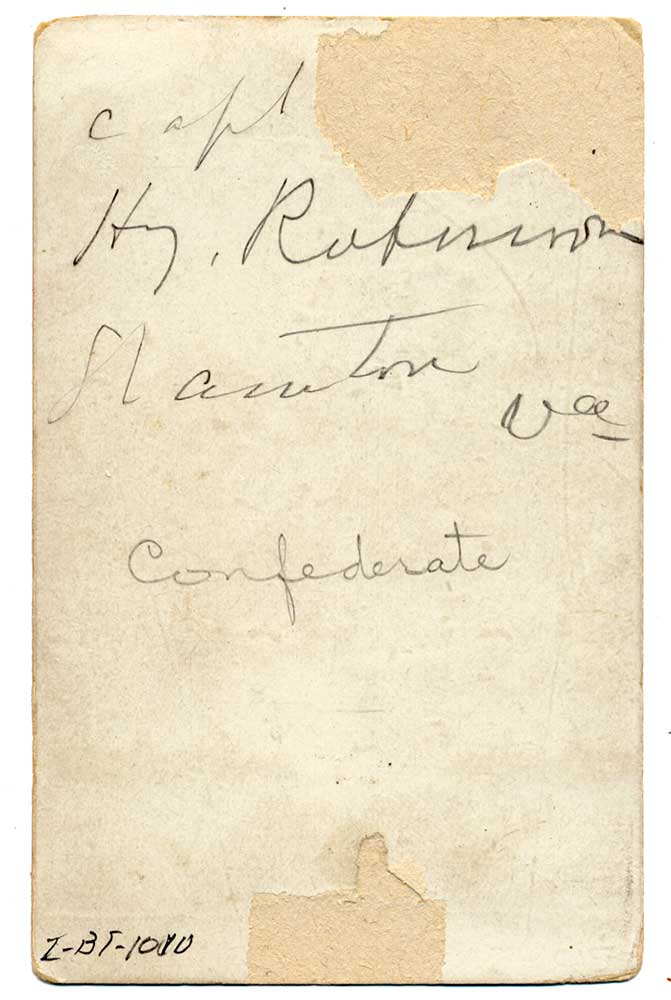 Capt
Hy. Robinson
Staunton
Va
Confederate